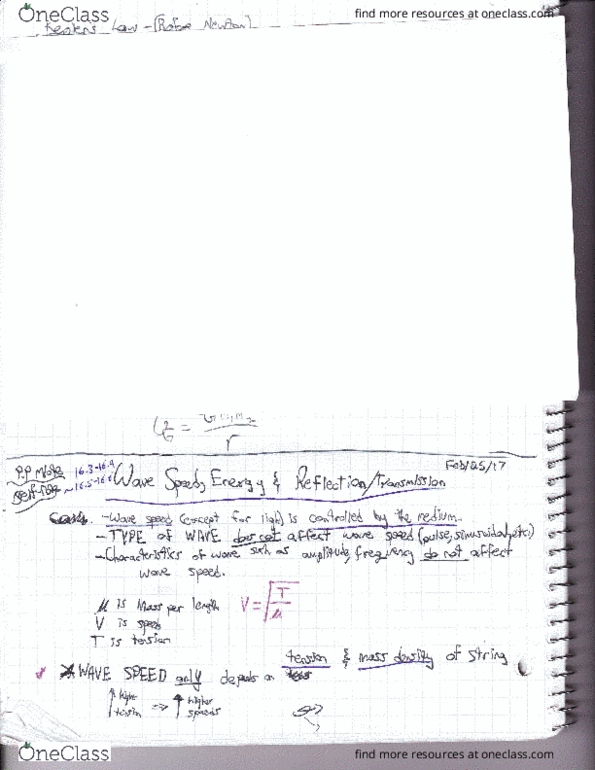 OneClass
find more resources at oneclass.com
Law - (Before Newton)
r
P.P Note 16.3-16.4
Self-
~16.5-16.6
Wave Speed, Energy & Reflection/Transmission
Feb/25/17
-Wave speed (except for light) is controlled by the medium.
-TYPE of WAVE does not affect wave speed (pulse, sinusoidal, etc.)
-Characteristics of wave such as amplitude, frequency do not affect
wave speed.
μ is Mass per length
V = √T/μ
V is speed
T is tension
WAVE SPEED only depends on tension & mass density of string
↑ higher tension ⇒ ↑ higher speeds
OneClass
find more resources at oneclass.com